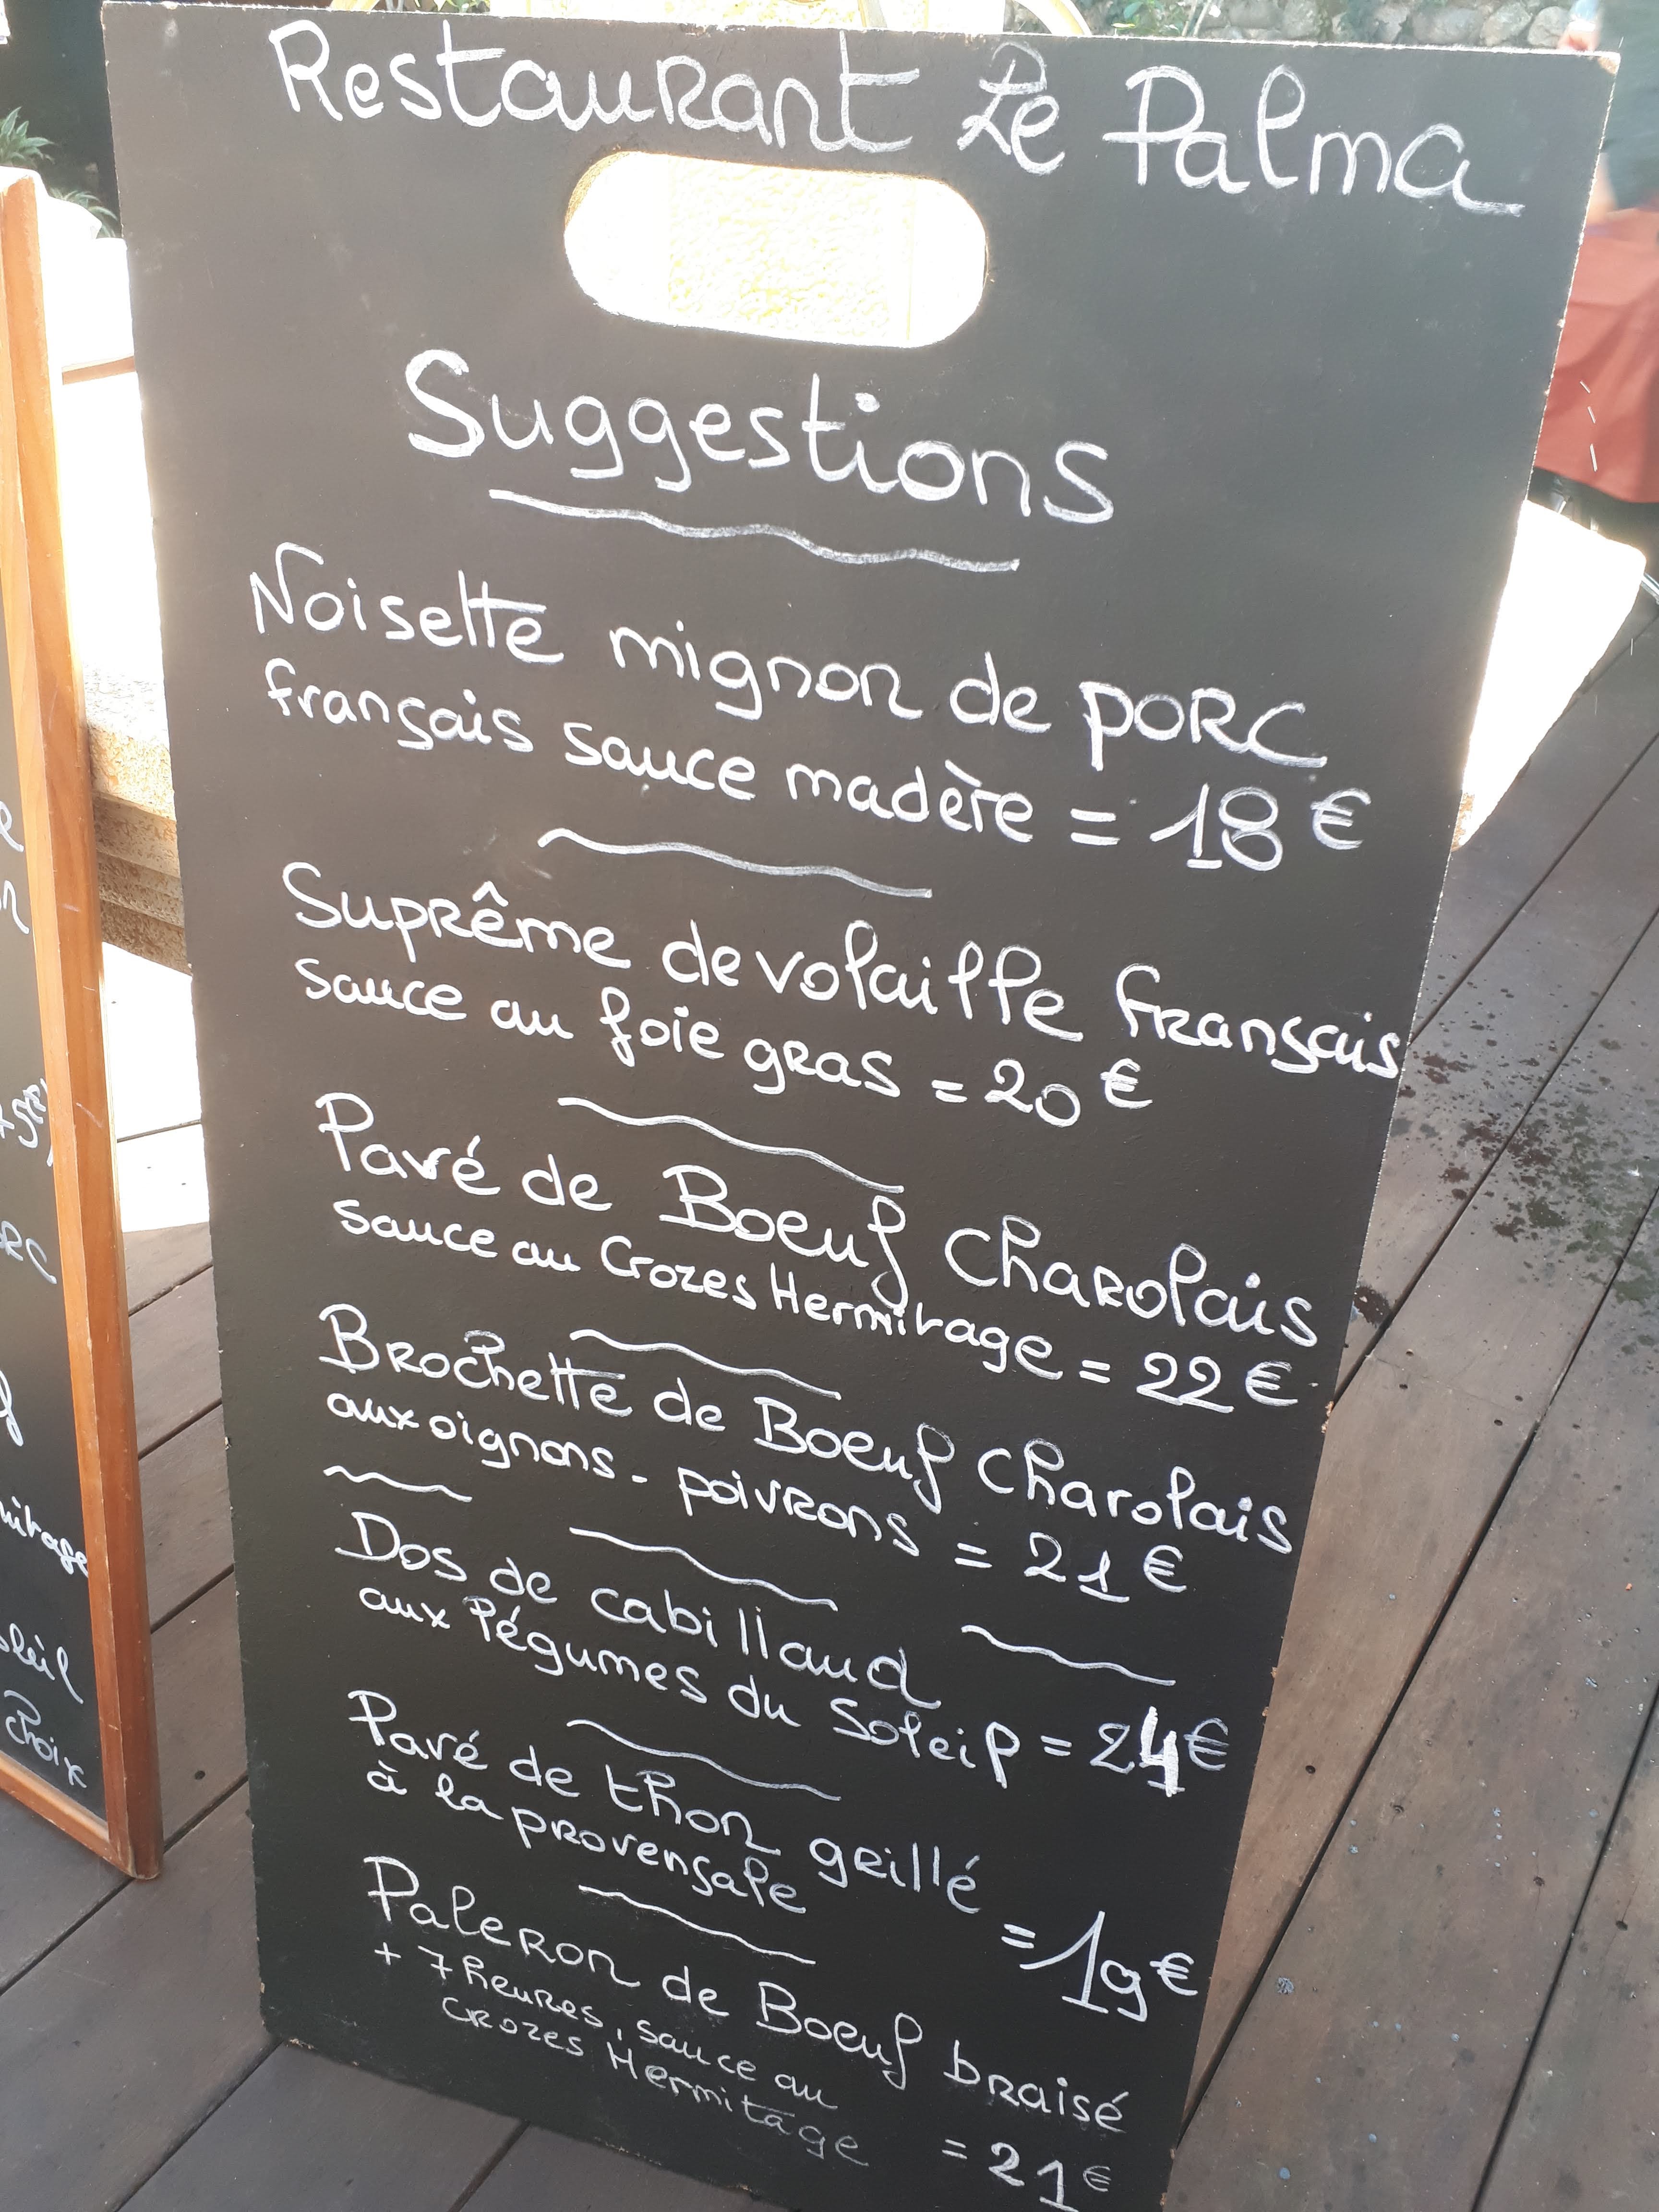 Restaurant Le Palma
Suggestions
Noisette mignon de porc
français sauce madère = 18 €
Suprême de volaille français
sauce au foie gras = 20 €
Pavé de Boeuf charolais
sauce au Crozes Hermitage = 22 €
Brochette de Boeuf charolais
aux oignons - poivrons = 21 €
Dos de cabillaud
aux légumes du Soleil = 24 €
Pavé de thon grillé
à la provençale = 19 €
Paleron de Boeuf braisé
+ 7 heures, sauce au
Crozes Hermitage = 21 €
choix